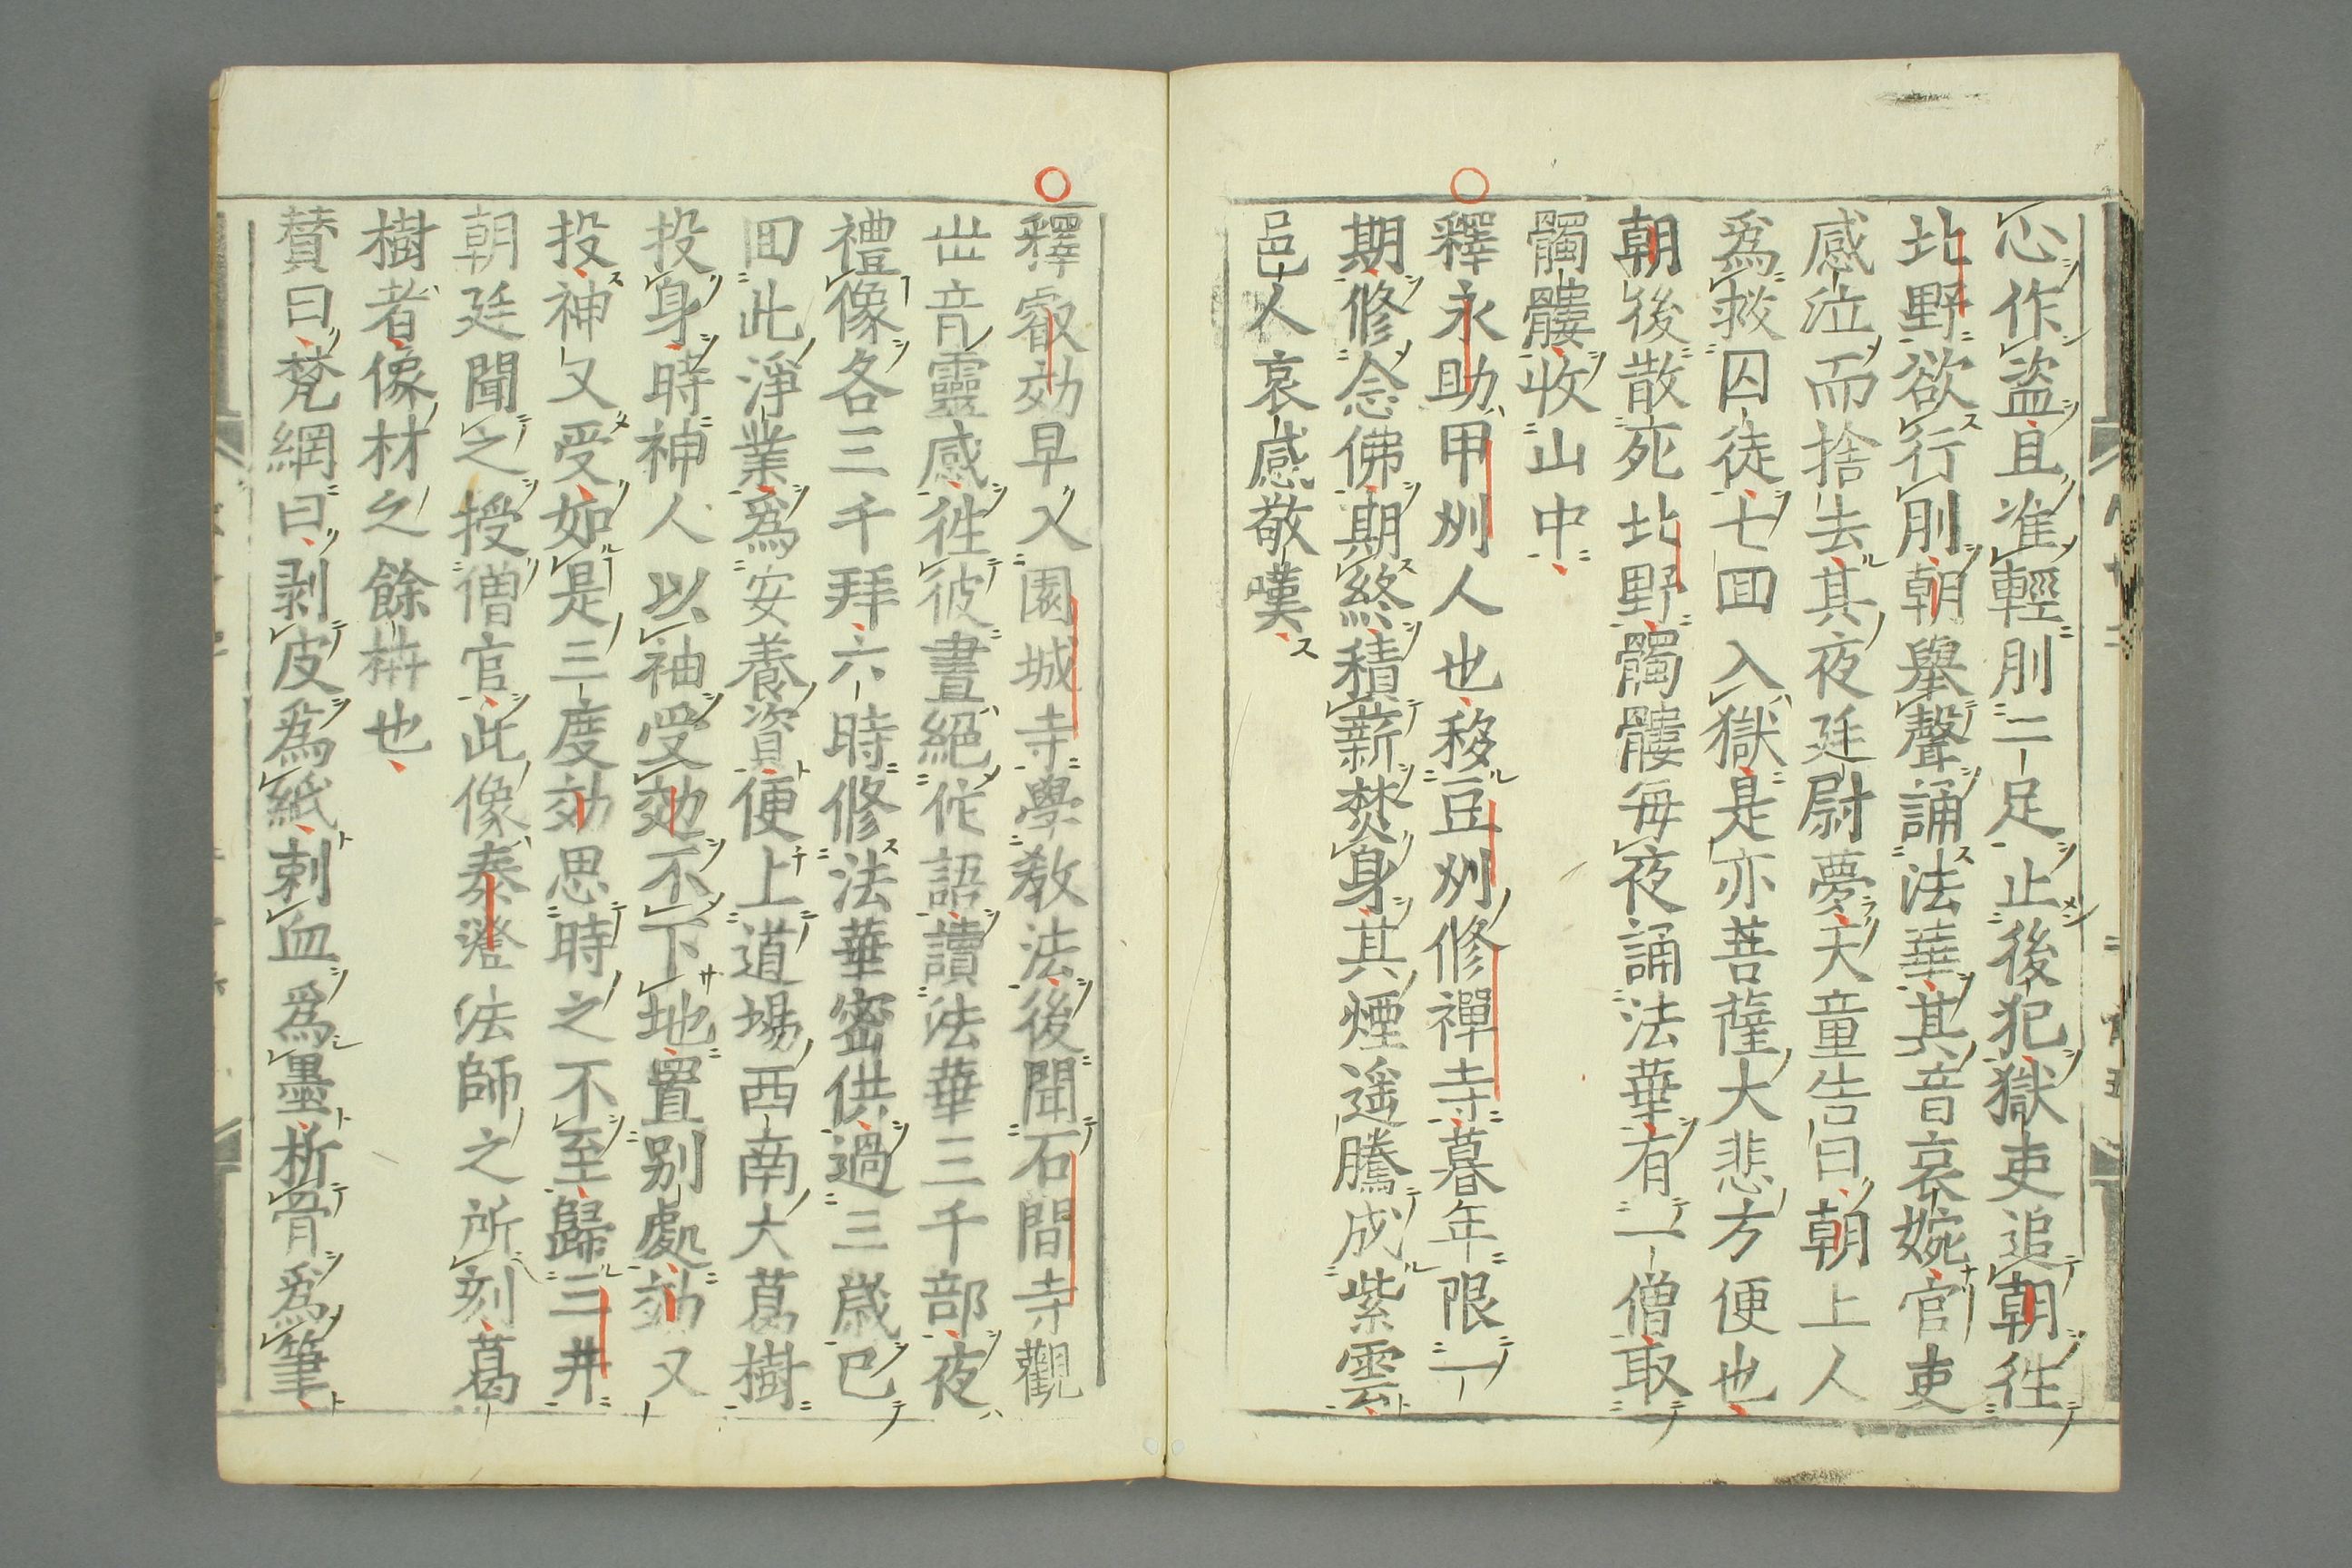 心作盜且准輕刖二足止後犯獄吏追朝徃
北野欲行刖朝舉聲誦法華其音哀婉官吏
感泣而捨去其夜廷尉夢天童告曰朝上人
爲救囚徒七回入獄是亦菩薩大悲方便也
朝後散死北野髑髏每夜誦法華有一僧取
髑髏收山中
釋永助甲刕人也移豆刕修禪寺暮年限一
期修念佛期終積薪焚身其煙遥騰成紫雲
邑人哀感敬嘆
釋叡効早入園城寺學教法後聞石間寺觀
丗音靈感徃彼晝絕佗語讀法華三千部夜
禮像各三千拜六時修法華密供過三歲已
囬此淨業爲安養資便上道場西南大葛樹
投身時神人以袖受効不下地置别處効又
投神又受如是三度効思時之不至歸三井
朝廷聞之授僧官此像泰澄法師之所刻葛
樹者像材之餘枿也
賛曰梵網曰剥皮爲紙刺血爲墨析骨爲筆